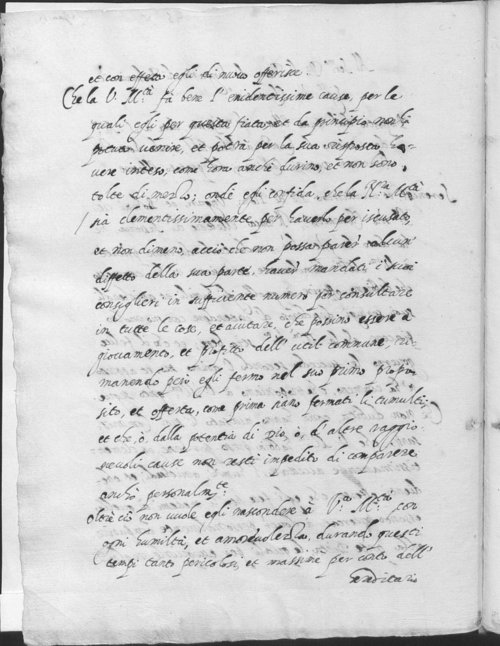 et con effeto egli di nuovo offerisce.
Che la V. M.tà sà bene l' euidentissime cause, per le
quali egli per questa fiata, et da principio non hà
potuto uenire, et potrà per la sua risposta ha-
uere inteso, come hora anchi durino, et non sono
tolte di mezzo; onde egli confida, che la V.ra M.tà
sia clementissimamente per hauerlo per iscusato,
et non dimeno, acciò che non possa parer alcun
diffetto della sua parte, hauer mandati i suoi
consiglieri in sufficiente numero per consultare
in tutte le cose, et aiutare, che possino essere à
giouamento, et profitto dell' util commune, ri-
manendo però egli fermo nel suo primo propo-
sito, et offerta, come prima siano fermati li tumulti
et che, ò dalla potentia di Dio, ò, d' altre raggio-
neuoli cause non resti impedito di comparere
anchò personalm.te
Oltre ciò non vuole egli nascondere à V.ra M.tà con
ogni humiltà, et amoreuolezza, durando questi
tempi tanto pericolosi, et massime per conto dell'
hereditario